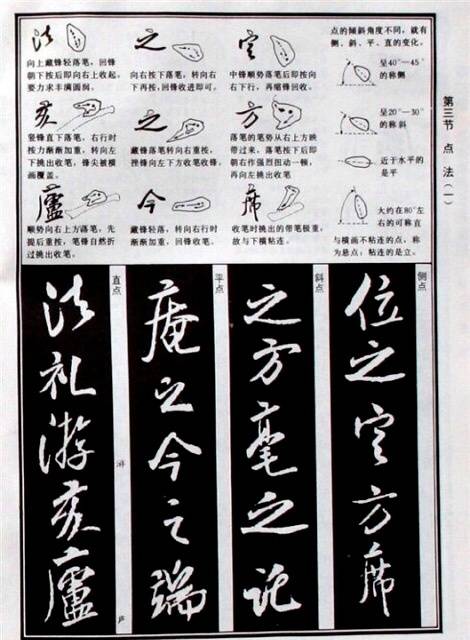 第三节 点 法（一）
点的倾斜角度不同，就有
侧、斜、平、直的变化。
呈40°—45°
的称侧
呈20°—30°
的称斜
近于水平的
是平
大约在80°左
右的可称直
与横画不粘连的点，称
为悬点；粘连的是立。
定
中锋顺势落笔后即按向
右下行，再缩锋回收。
方
落笔的笔势从右上方映
带过来，落笔按下后即
朝右作强烈扭动一顿，
再向左挑出收笔
席
收笔时挑出的带笔极重，
故与下横粘连。
之
向右按下落笔，转向右
下再按，回锋收进即可。
之
藏锋落笔转向右重按，
挫锋向左下方收笔收锋。
今
藏锋轻落，转向右行时
渐渐加重，回锋收笔。
法
向上藏锋轻落笔，回锋
朝下按后即向右上收起，
要力求丰满圆润。
亥
竖锋直下落笔，右行时
按力渐渐加重，转向左
下挑出收笔，锋尖被横
画覆盖。
廬
顺势向右上方落笔，先
提后重按，笔锋自然折
过挑出收笔。
侧点
位之定方席
斜点
之方毫之託
平点
庵之今之端
直点
法礼游亥廬
游